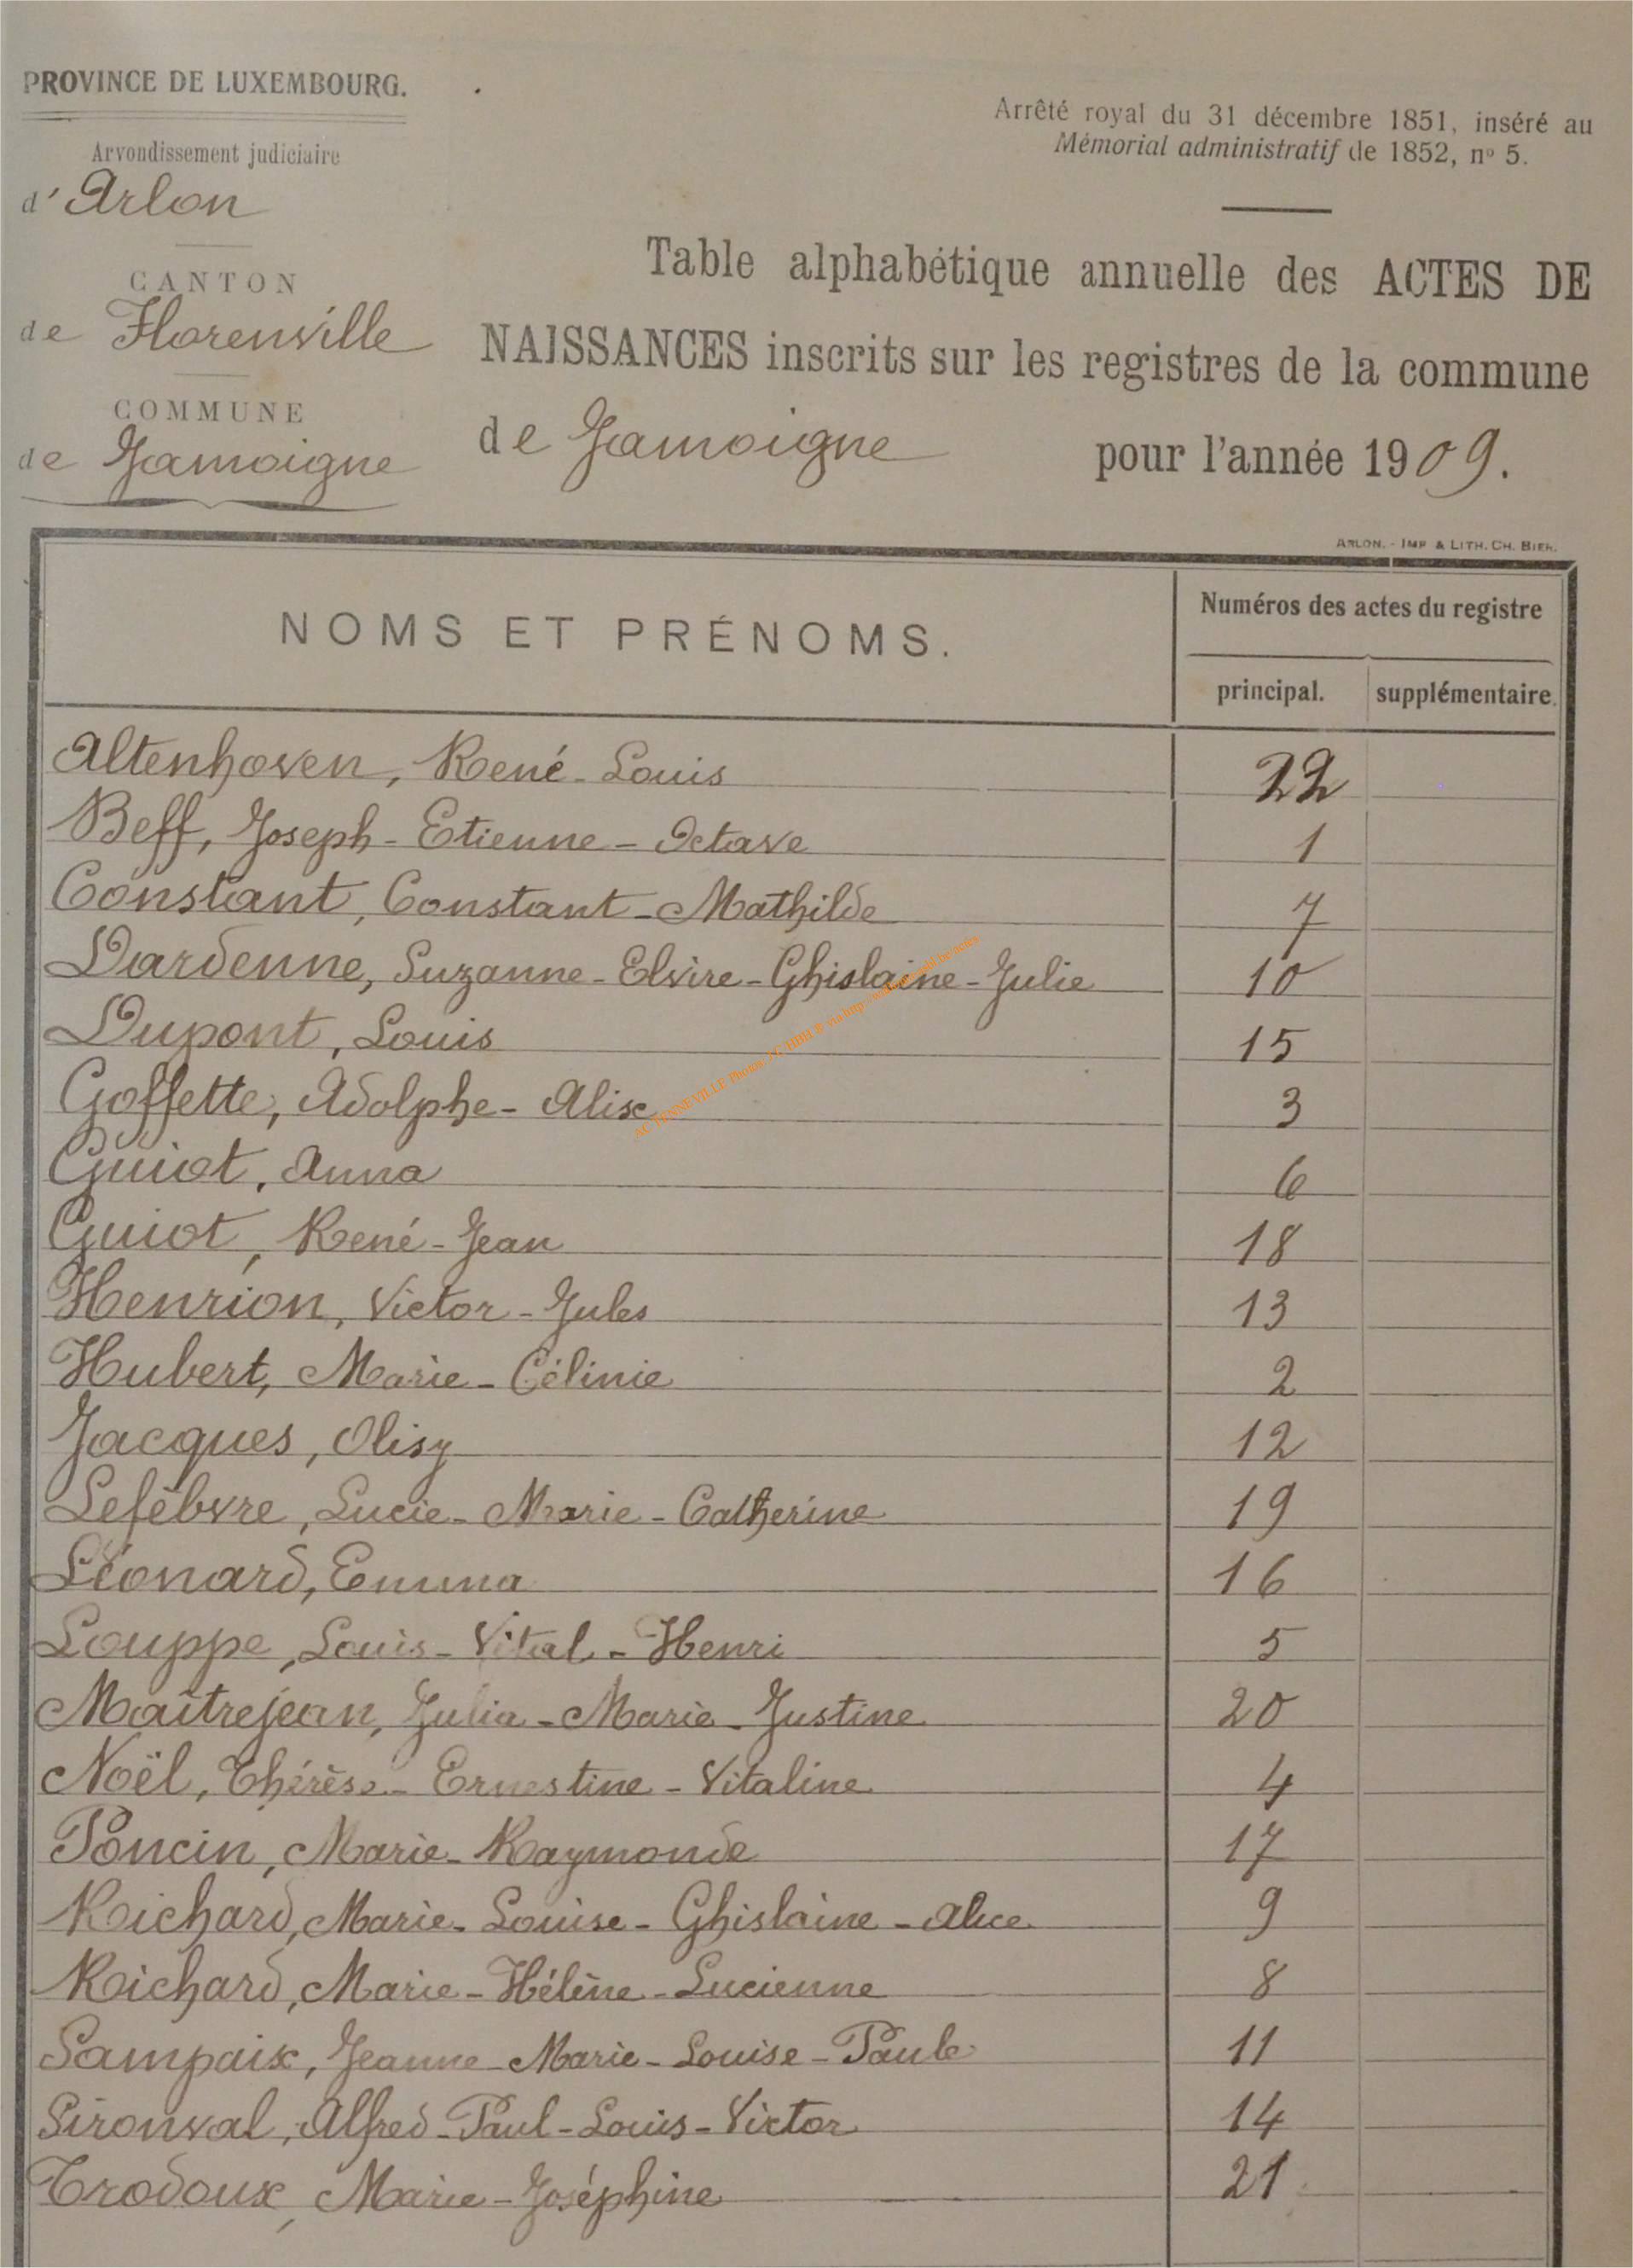 PROVINCE DE LUXEMBOURG.
Arrêté royal du 31 décembre 1851, inséré au
Mémorial administratif de 1852, nº 5.
Arrondissement judiciaire
d'Arlon
CANTON
de Florenville
COMMUNE
de Jamoigne
Table alphabétique annuelle des ACTES DE
NAISSANCES inscrits sur les registres de la commune
de Jamoigne pour l'année 1909.
ARLON. - IMP & LITH. CH. BIER.
NOMS ET PRÉNOMS.
Numéros des actes du registre
principal. supplémentaire.
Altenhoven, René-Louis 22
Beff, Joseph-Etienne-Octave 1
Constant, Constant-Mathilde 7
Dardenne, Suzanne-Elvire-Ghislaine-Julie 10
Dupont, Louis 15
Goffette, Adolphe-Alix 3
Guiot, Anna 6
Guiot, René-Jean 18
Henrion, Victor-Jules 13
Hubert, Marie-Célinie 2
Jacques, Olisy 12
Lefèbvre, Lucie-Marie-Catherine 19
Léonard, Emma 16
Louppe, Louis-Vital-Henri 5
Maîtrejean, Julia-Marie-Justine 20
Noël, Thérèse-Ernestine-Vitaline 4
Poncin, Marie-Raymonde 17
Richard, Marie-Louise-Ghislaine-Alice 9
Richard, Marie-Hélène-Lucienne 8
Sampaix, Jeanne-Marie-Louise-Paule 11
Sironval, Alfred-Paul-Louis-Victor 14
Trodoux, Marie-Joséphine 21